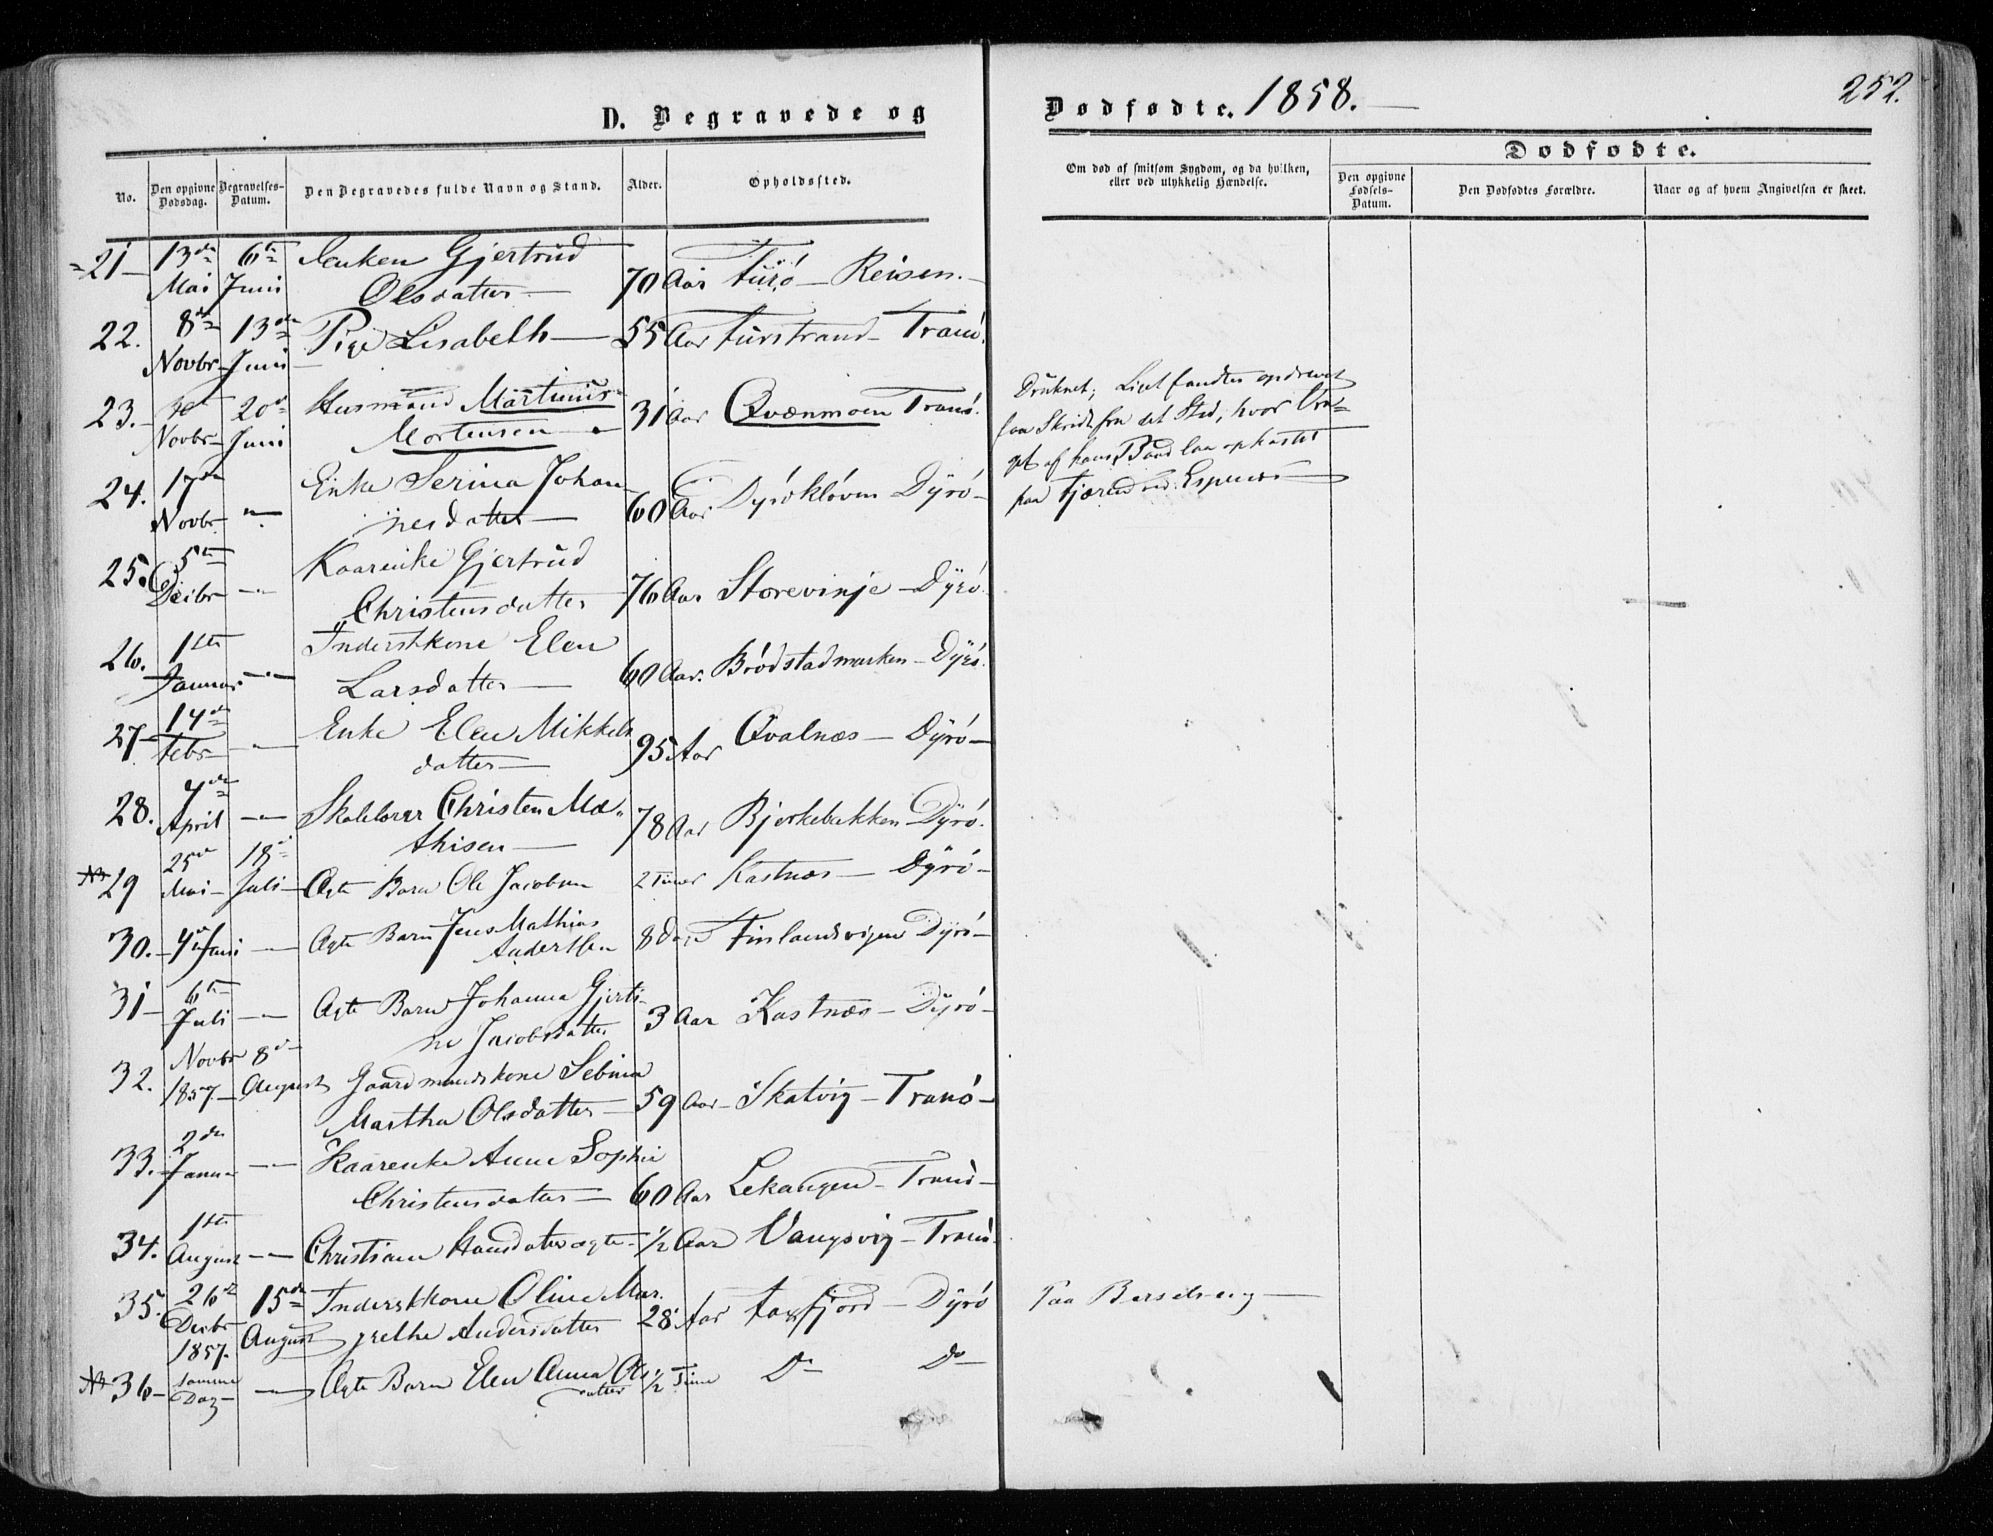 D. Begravede og Dødfødte. 1858. — 252.
No. Den opgivne Dødsdag. Begravelses-Datum. Den Begravedes fulde Navn og Stand. Alder. Opholdssted. Om død af smitsom Sygdom, og da hvilken, eller ved ulykkelig Hændelse.
Dødfødte.
Den opgivne Fødsels-Datum. Den Dødfødtes Forældre. Naar og af hvem Angivelsen er skeet.
21 — 13de Mai 6te Juni Enken Gjertrud Olsdatter — 70 Aar — Reisen. —
22. 8de Novbr 13de Juni Pige Lisabeth — 55 Aar Furstrand — Tranö.
23. Novbr 20de Juni Husmand Martinus Mortensen — 31 Aar Qvænmoen Tranö.
Druknet; Liget fandtes opdrevet
faa Skridt fra det Sted, hvor Vra-
get af hans Baad laa opkastet
paa Fjæren ved Espenes —
24. 17de Novbr — " — Enke Serina Johan nesdatter — 60 Aar Dyröklöven Dyrö —
25. 5te Decbr — " — Kaarenke Gjertrud Christensdatter 76 Aar Storevinje — Dyrö.
26. 1ste Januar — " — Inderstkone Elen Larsdatter — 60 Aar. Brödstadmarken — Dyrö.
27 — 14de Febr — " — Enke Elen Mikkels datter — 95 Aar Qvalnæs — Dyrö —
28. 4de April — " — Skolelærer Christen Ma- thisen — 78 Aar Bjerkebakken — Dyrö.
29 25de Mai — 18de Juli — Ægte Barn Ole Jacobsen 2 Timer Kastnæs — Dyrö —
30. — 4de Juni — Ægte Barn Jens Mathias Andersen 8 Dage Finlandsvigen Dyrö —
31 — 6te Juli — " — Ægte Barn Johanna Gjerti- ne Jacobsdatter 3 Aar Kastnæs — Dyrö —
32. Novbr 1857 — 8de August Gaardmandskone Sebina Martha Olsdatter — 59 Aar — Skatvig — Tranö —
33. 2den Januar — " — Kaarenke Anne Sophie Christensdatter — 60 Aar Lekangen — Tranö —
34. 1ste August — " — Christiane Hansdatter ægte — 1/2 Aar Vangsvig — Tranö.
35. 26de Decbr 1857. 15de August Inderstkone Oline Mar- grethe Andersdatter 28 Aar — Dyrö Paa Barselseng —
36 — samme Dag — — Ægte Barn Elen Anna Ols- datter 1/2 Time Do — Do —